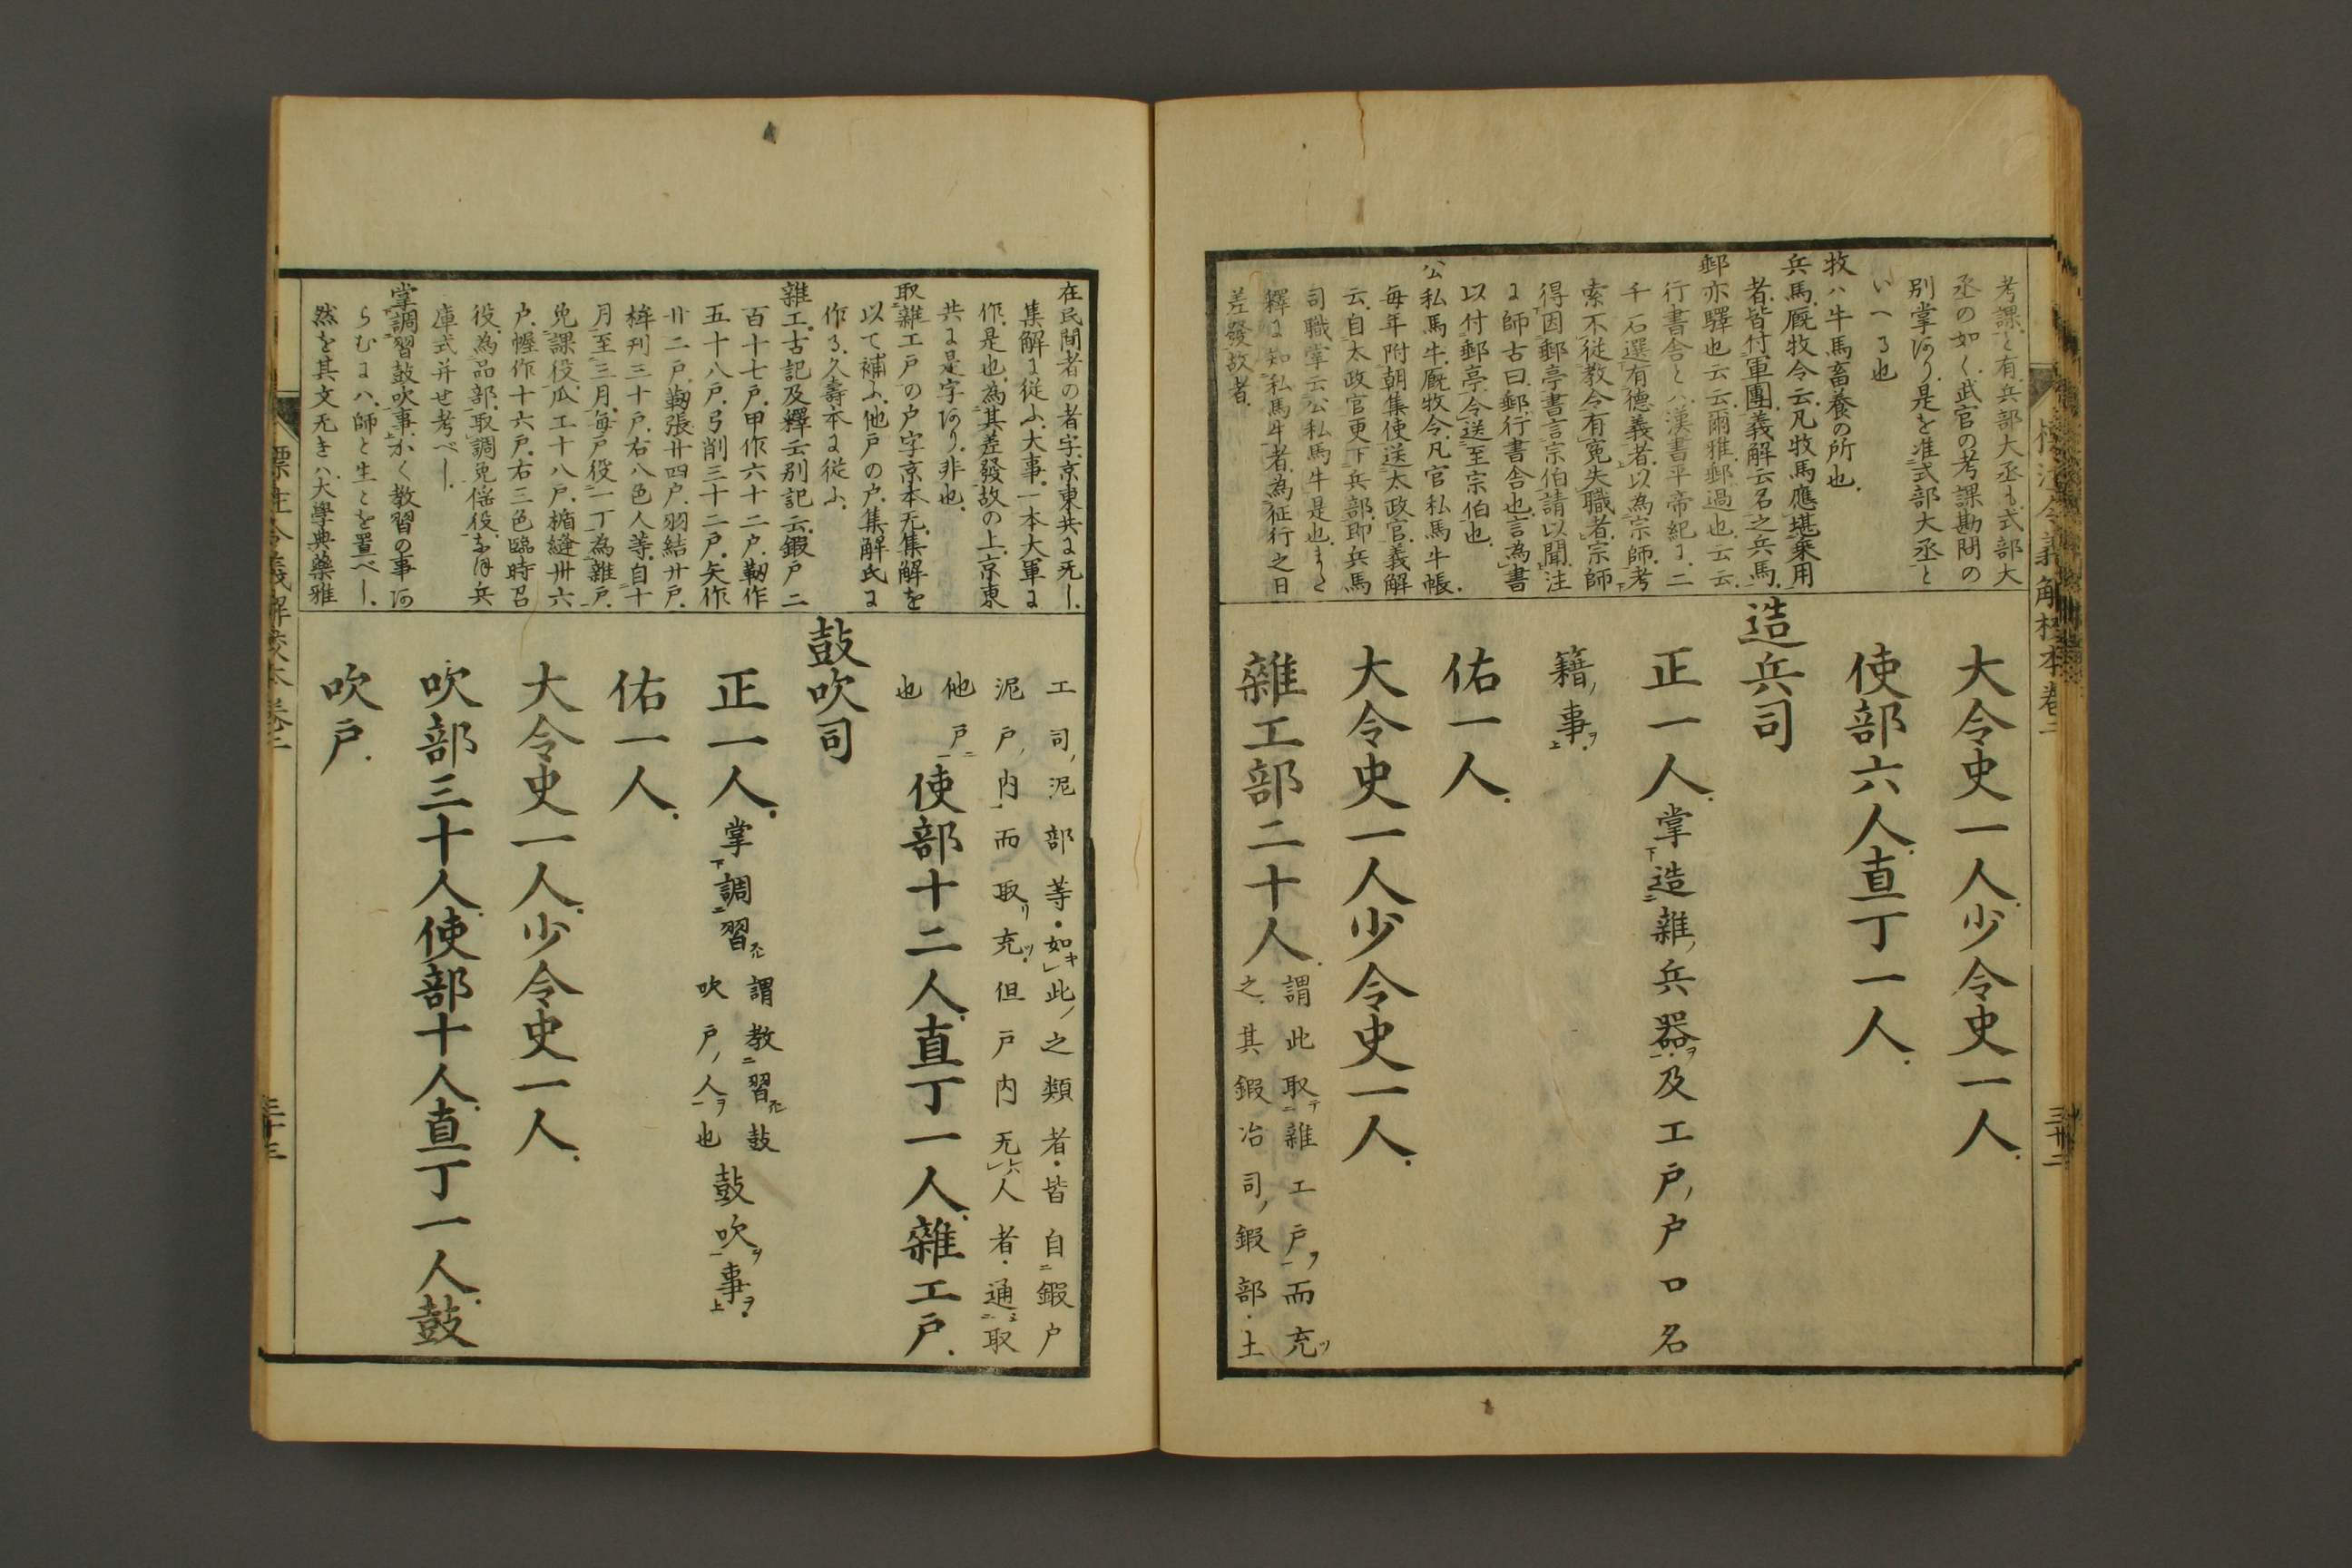 考課と有兵部大丞も式部大
丞の如く武官の考課勘問の
別掌あり是を准式部大丞と
いへる也
牧ハ牛馬畜養の所也
兵馬厩牧令云凡牧馬應堪乗用
者皆付軍團義解云名之兵馬
郵亦驛也云云爾雅郵過也云云
行書舎とハ漢書平帝紀に二
千石選有德義者以為宗師考
索不從教令有寃失職者宗師
得因郵亭書言宗伯請以聞注
に師古曰郵行書舎也言為書
以付郵亭令送至宗伯也
公私馬牛厩牧令凡官私馬牛帳
毎年附朝集使送太政官義解
云自太政官更下兵部即兵馬
司職掌云公私馬牛是也また
釋に知私馬牛者為征行之日
差發故者
大令史一人少令史一人
使部六人直丁一人
造兵司
正一人掌造雜兵器及工戸戸口名
籍事
佑一人
大令史一人少令史一人
雜工部二十人謂此取雜工戸而充
之其鍜冶司鍜部土
在民間者の者字京東共に无し
集解に従ふ大事一本大軍に
作是也為其差發故の上京東
共に是字あり非也
取雜工戸の戸字京本无集解を
以て補ふ他戸の戸集解氏に
作る久壽本に従ふ
雜工古記及釋云別記云鍜戸二
百十七戸甲作六十二戸靭作
五十八戸弓削三十二戸矢作
廾二戸鞆張廾四戸羽結廾戸
桙刊三十戸右八色人等自十
月至三月毎戸役一丁為雜戸
免課役爪工十八戸楯縫卅六
戸幄作十六戸右三色臨時召
役為品部取調免徭役なほ兵
庫式并せ考べし
掌調習鼓吹事かく教習の事あ
らむにハ師と生とを置べし
然を其文无きハ大學典藥雅
工司泥部等如此之類者皆自鍜戸
泥戸内而取充但戸内无人者通取
他戸
也
使部十二人直丁一人雜工戸
鼓吹司
正一人掌調習謂教習鼓
吹戸人也鼓吹事
佑一人
大令史一人少令史一人
吹部三十人使部十人直丁一人鼓
吹戸